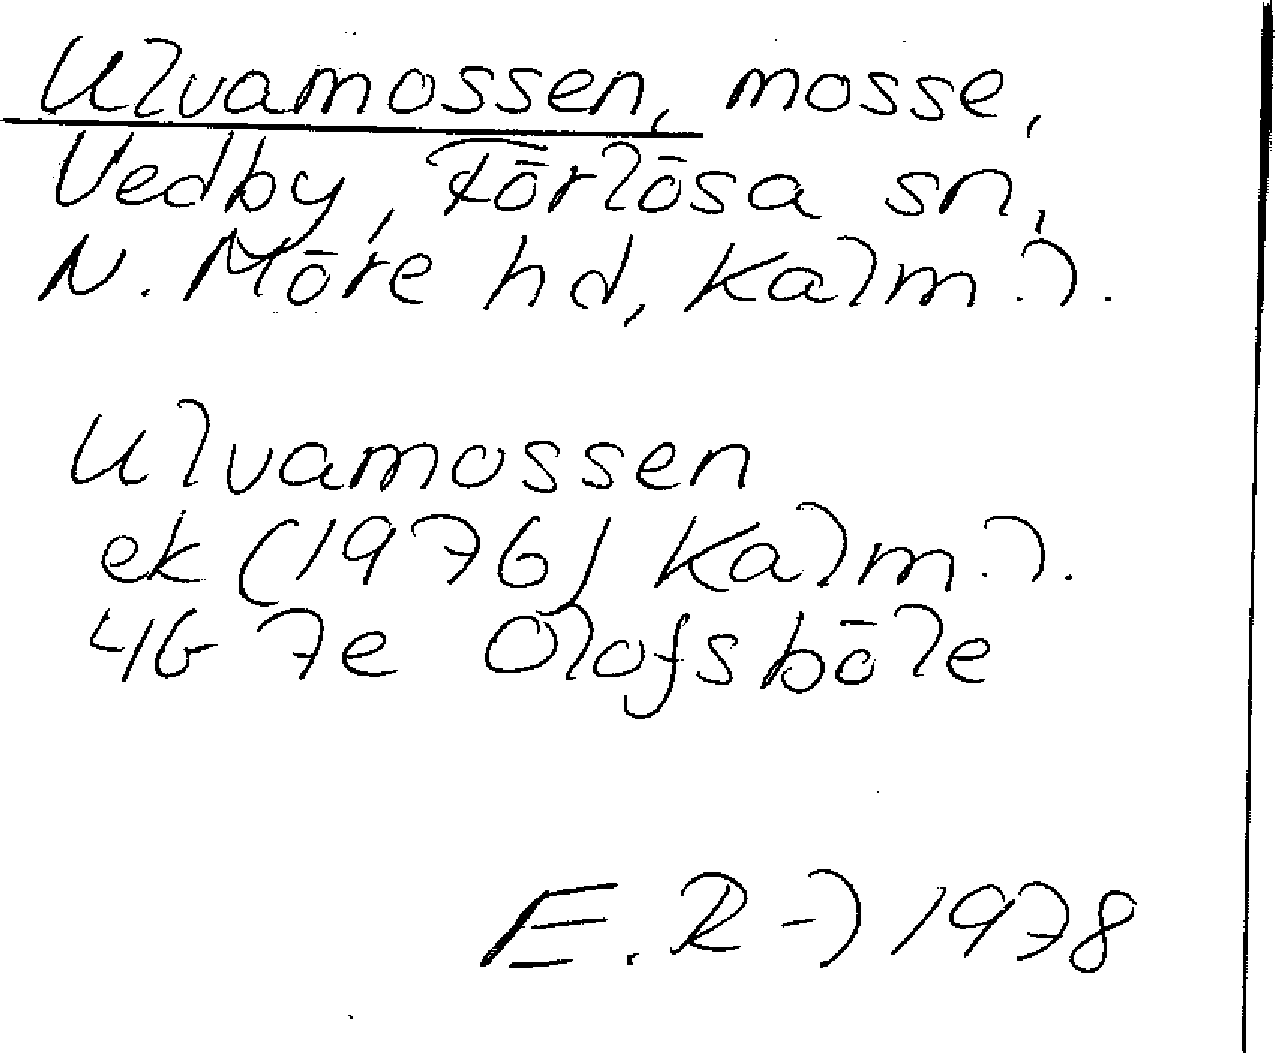 Ulvamossen, mosse,
Vedby, Förlösa sn,
N. Möre hd, Kalm.l.
Ulvamossen
ek (1976) Kalm.l.
4G 7e Olofsböle
E. R-l 1978